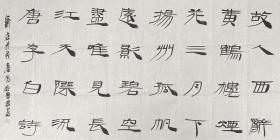 故人西辭
黃鶴樓煙
花三月下
揚州孤帆
遠影碧空
盡唯見長
江天際流
唐李白詩